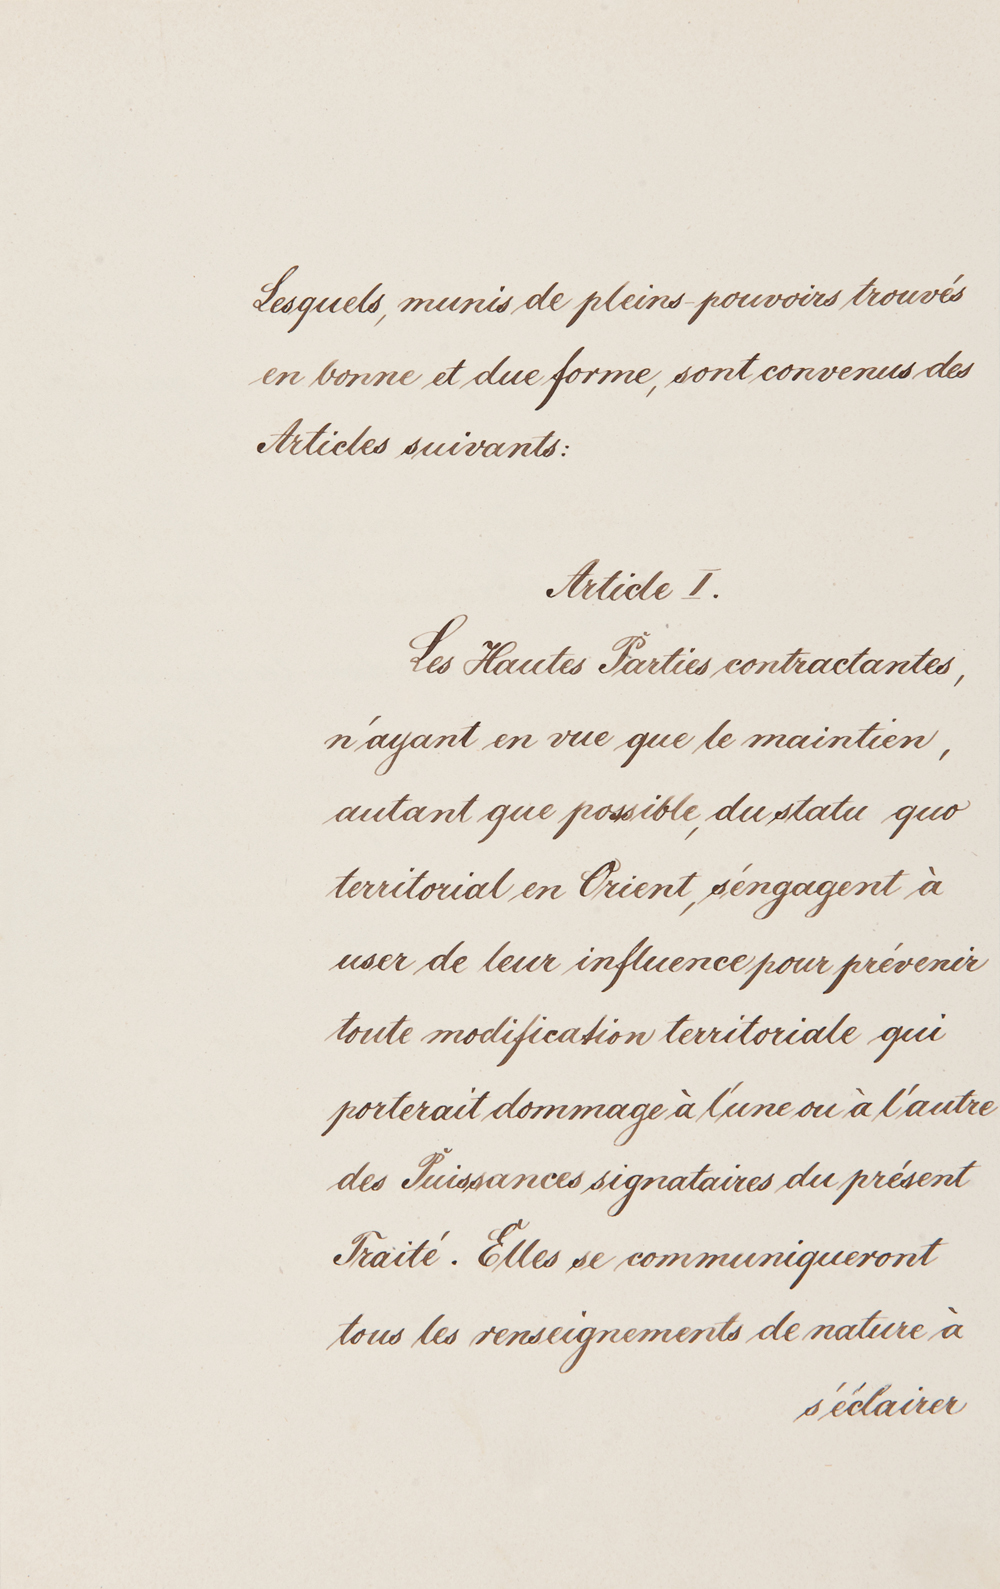 Lesquels, munis de pleins-pouvoirs trouvés
en bonne et due forme, sont convenus des
Articles suivants:
Article I.
Les Hautes Parties contractantes,
n'ayant en vue que le maintien,
autant que possible, du statu quo
territorial en Orient, s'engagent à
user de leur influence pour prévenir
toute modification territoriale qui
porterait dommage à l'une ou à l'autre
des Puissances signataires du présent
Traité. Elles se communiqueront
tous les renseignements de nature à
s'éclairer